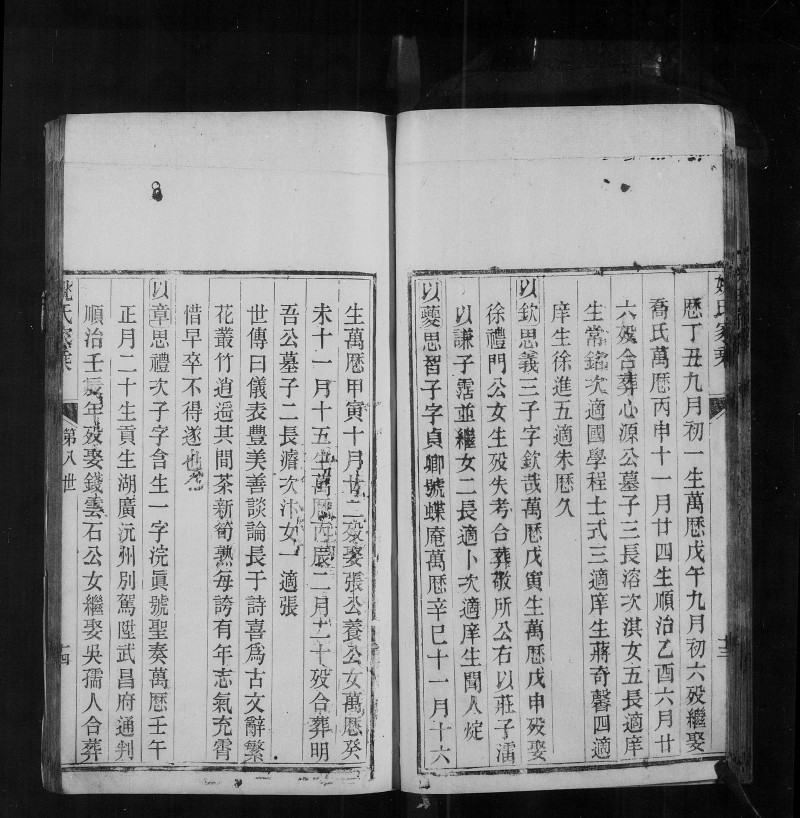 姚氏家乘
十三
歷丁丑九月初一生萬歷戊午九月初六歿繼娶
喬氏萬歷丙申十一月廿四生順治乙酉六月廿
六歿合葬心源公墓子三長溶次淇女五長適庠
生常銘次適國學程士式三適庠生蔣奇馨四適
庠生徐進五適朱歷久
以欽思義三子字欽哉萬歷戊寅生萬歷戊申歿娶
徐禮門公女生歿失考合葬敬所公右以莊子濡
以謙子澐並繼女二長適卜次適庠生聞人烶
以夔思智子字貞卿號蝶庵萬歷辛巳十一月十六
生萬歷甲寅十月廿二歿娶張公養公女萬歷癸
未十一月十五生萬歷丙辰二月二十歿合葬明
吾公墓子二長濟次汴女一適張
世傳曰儀表豐美善談論長于詩喜為古文辭繁
花叢竹逍遥其間茶新筍熟每誇有年志氣充霄
惜早卒不得遂也
以章思禮次子字含生一字浣眞號聖奏萬歷壬午
正月二十生貢生湖廣沅州別駕陞武昌府通判
順治壬辰年歿娶錢雲石公女繼娶吳孺人合葬
姚氏家乘
第八世
十四